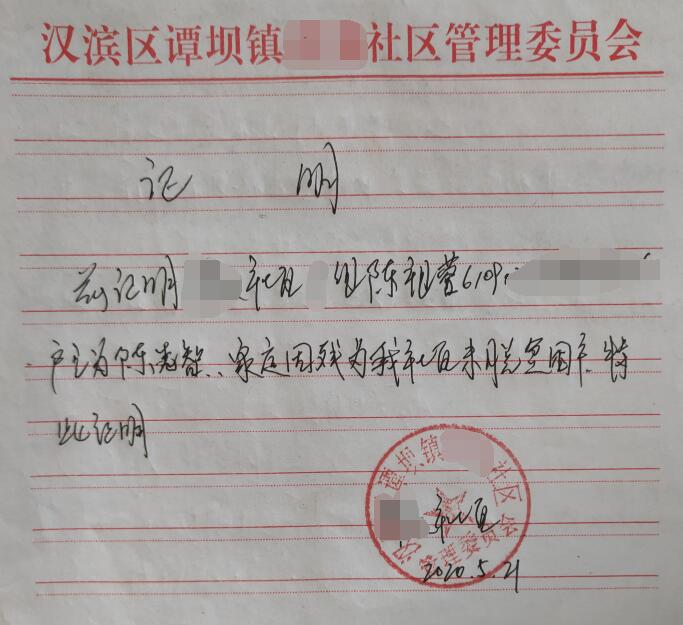 汉滨区谭坝镇 社区管理委员会
证 明
兹证明 社区 组陈祖萱6109
户主为陈 智、家庭因残为我社区未脱贫困户.特
此证明
谭坝镇 社区
管理委员会
社区
2020.5.21